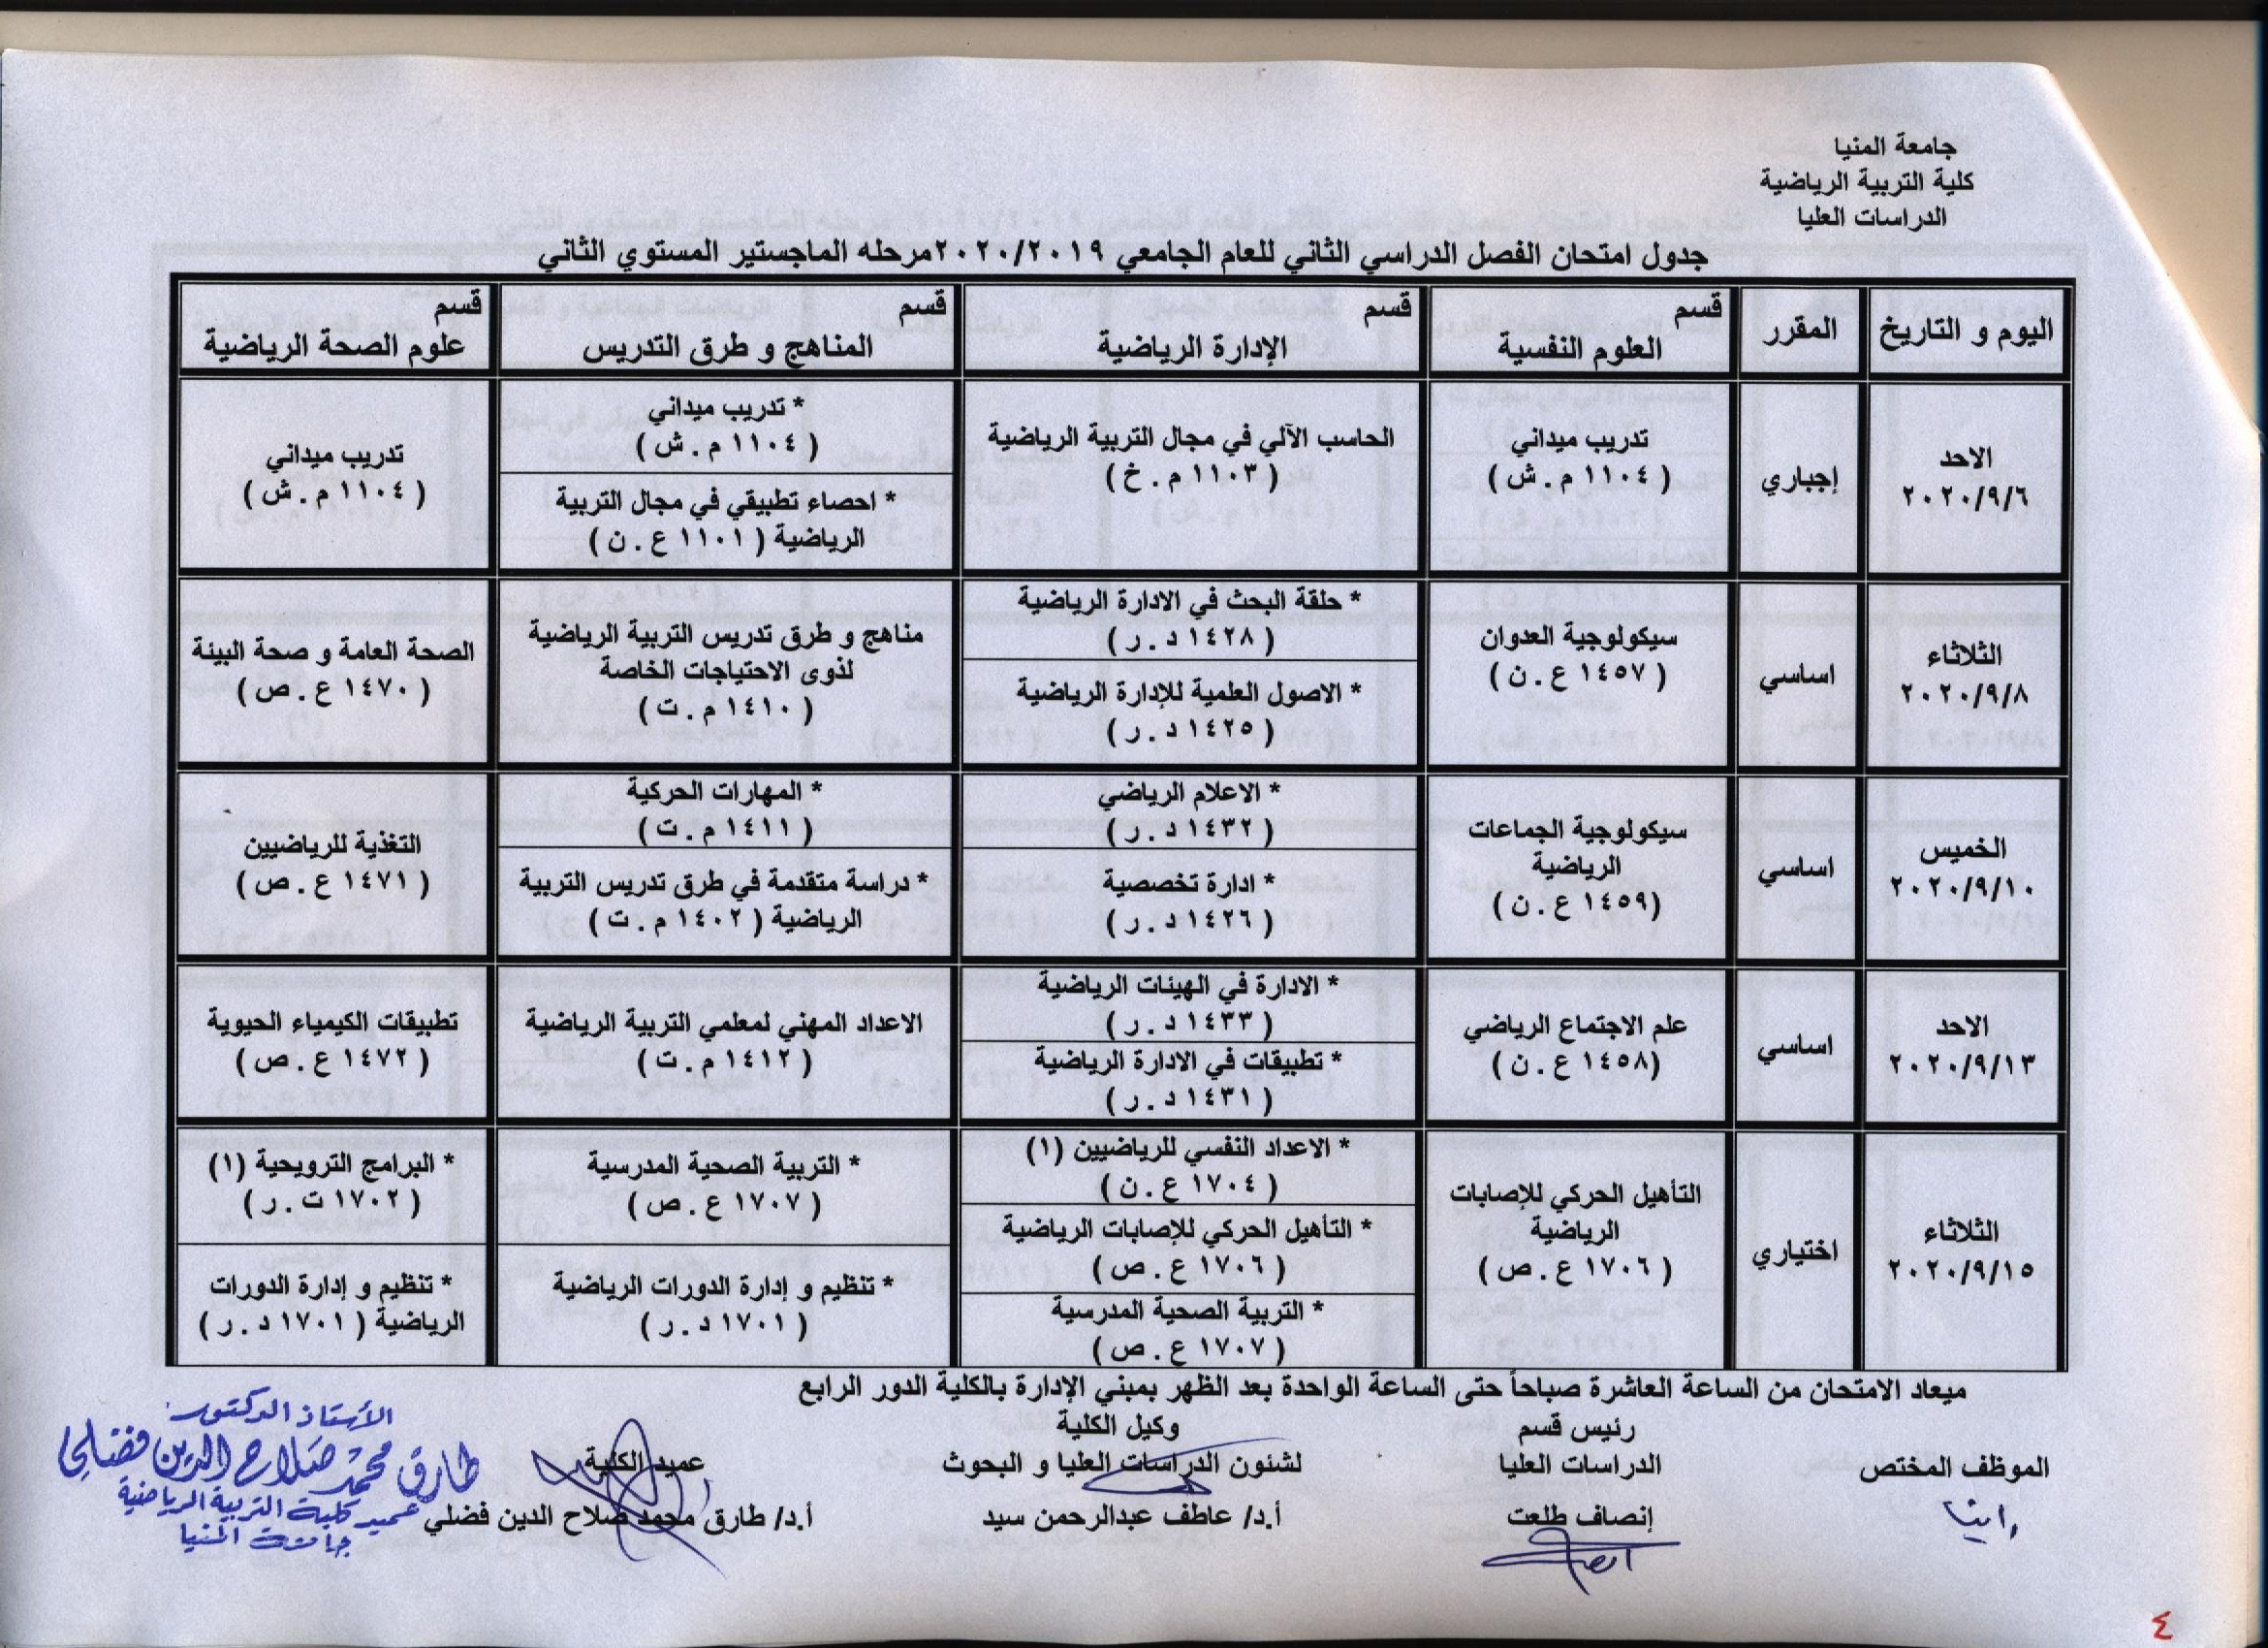 جامعة المنيا
كلية التربية الرياضية
الدراسات العليا
جدول امتحان الفصل الدراسي الثاني للعام الجامعي ٢٠٢٠/٢٠١٩مرحله الماجستير المستوي الثاني
اليوم و التاريخ
المقرر
قسم
العلوم النفسية
قسم
الإدارة الرياضية
قسم
المناهج و طرق التدريس
قسم
علوم الصحة الرياضية
الاحد
٢٠٢٠/٩/٦
إجباري
تدريب ميداني
( ١١٠٤ م . ش )
الحاسب الآلي في مجال التربية الرياضية
( ١١٠٣ م . خ )
* تدريب ميداني
( ١١٠٤ م . ش )
* احصاء تطبيقي في مجال التربية
الرياضية ( ١١٠١ ع . ن )
تدريب ميداني
( ١١٠٤ م . ش )
الثلاثاء
٢٠٢٠/٩/٨
اساسي
سيكولوجية العدوان
( ١٤٥٧ ع . ن )
* حلقة البحث في الادارة الرياضية
( ١٤٢٨ د . ر )
* الاصول العلمية للإدارة الرياضية
( ١٤٢٥ د . ر )
مناهج و طرق تدريس التربية الرياضية
لذوى الاحتياجات الخاصة
( ١٤١٠ م . ت )
الصحة العامة و صحة البيئة
( ١٤٧٠ ع . ص )
الخميس
٢٠٢٠/٩/١٠
اساسي
سيكولوجية الجماعات
الرياضية
(١٤٥٩ ع . ن )
* الاعلام الرياضي
( ١٤٣٢ د . ر )
* ادارة تخصصية
( ١٤٢٦ د . ر )
* المهارات الحركية
( ١٤١١ م . ت )
* دراسة متقدمة في طرق تدريس التربية
الرياضية ( ١٤٠٢ م . ت )
التغذية للرياضيين
( ١٤٧١ ع . ص )
الاحد
٢٠٢٠/٩/١٣
اساسي
علم الاجتماع الرياضي
(١٤٥٨ ع . ن )
* الادارة في الهيئات الرياضية
( ١٤٣٣ د . ر )
* تطبيقات في الادارة الرياضية
( ١٤٣١ د . ر )
الاعداد المهني لمعلمي التربية الرياضية
( ١٤١٢ م . ت )
تطبيقات الكيمياء الحيوية
( ١٤٧٢ ع . ص )
الثلاثاء
٢٠٢٠/٩/١٥
اختياري
التأهيل الحركي للإصابات
الرياضية
( ١٧٠٦ ع . ص )
* الاعداد النفسي للرياضيين (١)
( ١٧٠٤ ع . ن )
* التأهيل الحركي للإصابات الرياضية
( ١٧٠٦ ع . ص )
* التربية الصحية المدرسية
( ١٧٠٧ ع . ص )
* التربية الصحية المدرسية
( ١٧٠٧ ع . ص )
* تنظيم و إدارة الدورات الرياضية
( ١٧٠١ د . ر )
* البرامج الترويحية (١)
( ١٧٠٢ ت . ر )
* تنظيم و إدارة الدورات
الرياضية ( ١٧٠١ د . ر )
ميعاد الامتحان من الساعة العاشرة صباحاً حتى الساعة الواحدة بعد الظهر بمبني الإدارة بالكلية الدور الرابع
الموظف المختص
رانيا
رئيس قسم
الدراسات العليا
إنصاف طلعت
وكيل الكلية
لشئون الدراسات العليا و البحوث
أ.د/ عاطف عبدالرحمن سيد
عميد الكلية
أ.د/ طارق محمد صلاح الدين فضلي
الأستاذ الدكتور
طارق محمد صلاح الدين فضلي
عميد كلية التربية الرياضية
جامعة المنيا
٤